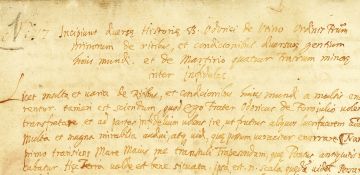 Incipiunt diverse Historie B. Odorici de Utino Ordinis fratrum
minorum de ritibus, et condicionibus diversis gentium
huius mundi, et de Martirio quatuor fratrum minorum
inter Infideles.
Licet multa et varia de Ritibus, et condicionibus huius mundi a multis
tamen est sciendum quod ego frater Odoricus de Forojulio volens
transfretare et ad partes infidelium volens ire, ut fructus aliquos lucrifacerem
Multa et magna mirabilia audivi, atque vidi, que possum veraciter enarrare
primo transiens Mare Maius me transtuli Trapesundam, que Pontus
hec Terra valde est bene situata, ipsa est